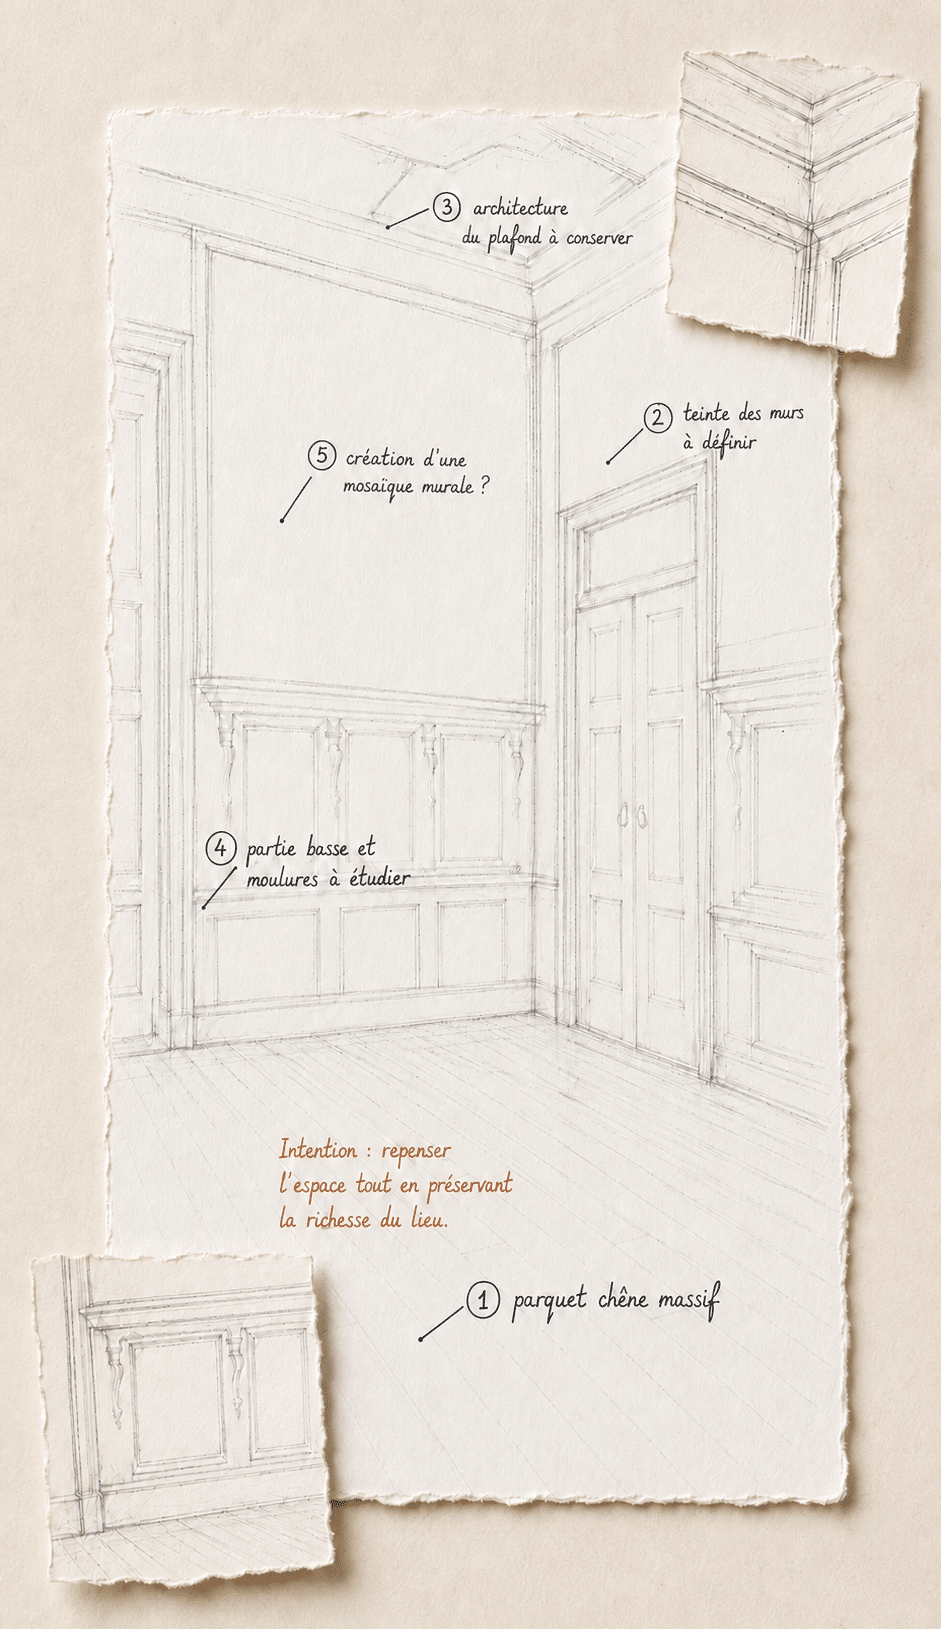 3 architecture
du plafond à conserver
2 teinte des murs
à définir
5 création d'une
mosaïque murale ?
4 partie basse et
moulures à étudier
Intention : repenser
l'espace tout en préservant
la richesse du lieu.
1 parquet chêne massif